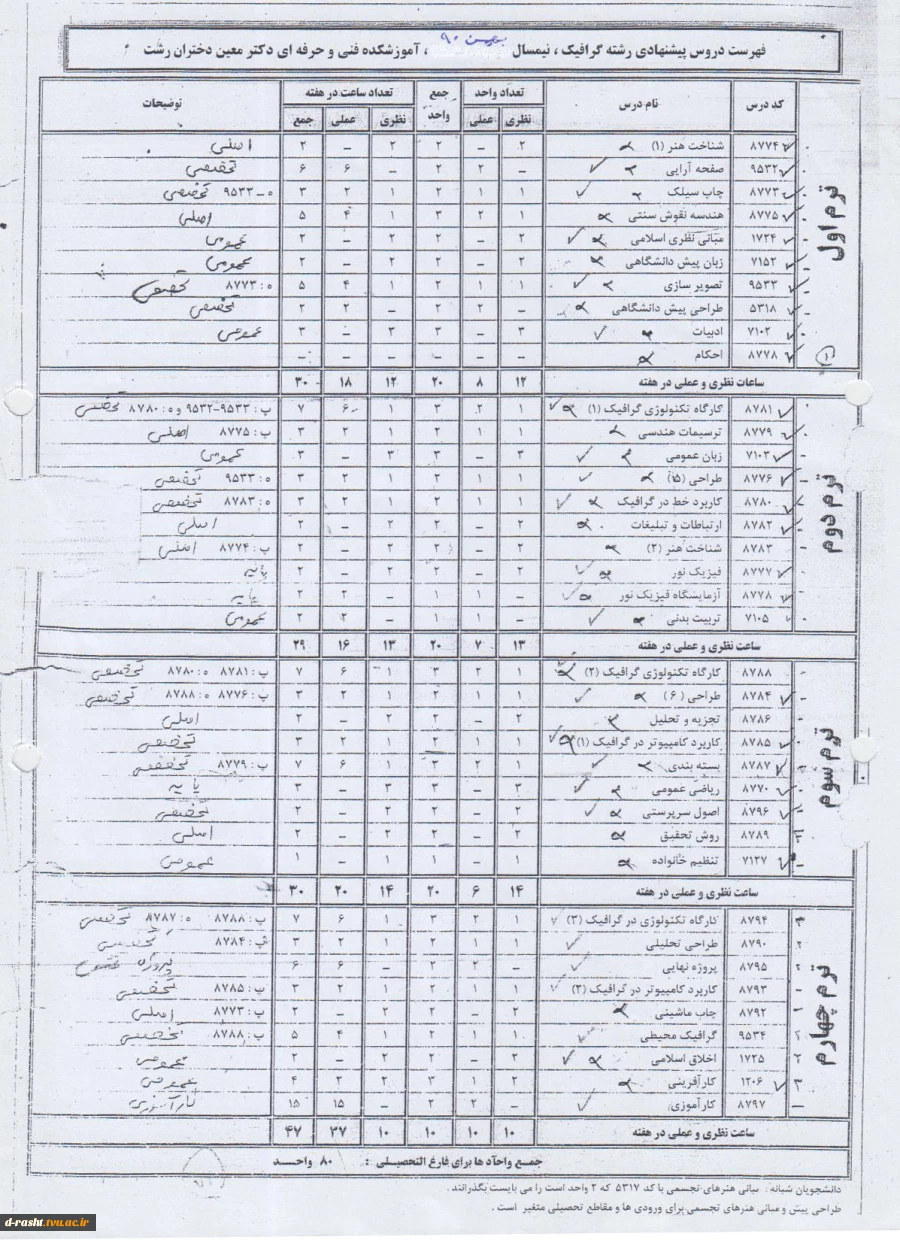 فهرست دروس پیشنهادی رشته گرافیک ، نیمسال بهمن ۹۰ ، آموزشکده فنی و حرفه ای دکتر معین دختران رشت
کد درس نام درس تعداد واحد جمع واحد تعداد ساعت در هفته توضیحات
نظری عملی نظری عملی جمع
ترم اول
۸۷۷۴ شناخت هنر (۱) ۲ – ۲ ۲ – ۲ اصلی
۹۵۳۲ صفحه آرایی – ۲ ۲ – ۶ ۶ تخصصی
۸۷۷۳ چاپ سیلک ۱ ۱ ۲ ۱ ۲ ۳ ه- ۹۵۳۳ تخصصی
۸۷۷۵ هندسه نقوش سنتی ۱ ۲ ۳ ۱ ۴ ۵ اصلی
۱۷۲۴ مبانی نظری اسلامی ۲ – ۲ ۲ – ۲ عمومی
۷۱۵۲ زبان پیش دانشگاهی ۲ – ۲ ۲ – ۲ عمومی
۹۵۳۳ تصویر سازی ۱ ۱ ۲ ۱ ۴ ۵ ه: ۸۷۷۳ تخصصی
۵۳۱۸ طراحی پیش دانشگاهی – ۲ ۲ – ۲ ۲ تخصصی
۷۱۰۲ ادبیات ۳ – ۳ ۳ – ۳ عمومی
۸۷۷۸ احکام – – – – – –
ساعات نظری و عملی در هفته ۱۲ ۸ ۲۰ ۱۲ ۱۸ ۳۰
ترم دوم
۸۷۸۱ کارگاه تکنولوژی گرافیک (۱) ۱ ۲ ۳ ۱ ۶ ۷ پ: ۹۵۳۳-۹۵۳۲ و ه: ۸۷۸۰ تخصصی
۸۷۷۹ ترسیمات هندسی ۱ ۱ ۲ ۱ ۲ ۳ پ: ۸۷۷۵ اصلی
۷۱۰۳ زبان عمومی ۳ – ۳ ۳ – ۳ عمومی
۸۷۷۶ طراحی (۵) ۱ ۱ ۲ ۱ ۲ ۳ ه: ۹۵۳۳ تخصصی
۸۷۸۰ کاربرد خط در گرافیک ۱ ۱ ۲ ۱ ۲ ۳ ه: ۸۷۸۳ تخصصی
۸۷۸۲ ارتباطات و تبلیغات ۲ – ۲ ۲ – ۲ اصلی
۸۷۸۳ شناخت هنر (۲) ۲ – ۲ ۲ – ۲ پ: ۸۷۷۴ اصلی
۸۷۷۷ فیزیک نور ۲ – ۲ ۲ – ۲ پایه
۸۷۷۸ آزمایشگاه فیزیک نور – ۱ ۱ – ۲ ۲ پایه
۷۱۰۵ تربیت بدنی – ۱ ۱ – ۲ ۲ عمومی
ساعت نظری و عملی در هفته ۱۳ ۷ ۲۰ ۱۳ ۱۶ ۲۹
ترم سوم
۸۷۸۸ کارگاه تکنولوژی گرافیک (۲) ۱ ۲ ۳ ۱ ۶ ۷ پ: ۸۷۸۱ ه: ۸۷۸۰ تخصصی
۸۷۸۴ طراحی (۶) ۱ ۱ ۲ ۱ ۲ ۳ پ: ۸۷۷۶ ه: ۸۷۸۸ تخصصی
۸۷۸۶ تجزیه و تحلیل ۲ – ۲ ۲ – ۲ اصلی
۸۷۸۵ کاربرد کامپیوتر در گرافیک (۱) ۱ ۱ ۲ ۱ ۲ ۳ تخصصی
۸۷۸۷ بسته بندی ۱ ۲ ۳ ۱ ۶ ۷ پ: ۸۷۷۹ تخصصی
۸۷۷۰ ریاضی عمومی ۳ – ۳ ۳ – ۳ پایه
۸۷۹۶ اصول سرپرستی ۲ – ۲ ۲ – ۲ تخصصی
۸۷۸۹ روش تحقیق ۲ – ۲ ۲ – ۲ اصلی
۷۱۲۷ تنظیم خانواده ۱ – ۱ ۱ – ۱ عمومی
ساعت نظری و عملی در هفته ۱۴ ۶ ۲۰ ۱۴ ۲۰ ۳۰
ترم چهارم
۸۷۹۴ کارگاه تکنولوژی در گرافیک (۳) ۱ ۲ ۳ ۱ ۶ ۷ پ: ۸۷۸۸ ه: ۸۷۸۷ تخصصی
۸۷۹۰ طراحی تحلیلی ۱ ۱ ۲ ۱ ۲ ۳ پ: ۸۷۸۴ تخصصی
۸۷۹۵ پروژه نهایی – ۲ ۲ – ۶ ۶ پروژه
۸۷۹۳ کاربرد کامپیوتر در گرافیک (۲) ۱ ۱ ۲ ۱ ۲ ۳ پ: ۸۷۸۵ تخصصی
۸۷۹۲ چاپ ماشینی ۲ – ۲ ۲ – ۲ پ: ۸۷۷۳ اصلی
۹۵۳۴ گرافیک محیطی ۱ ۱ ۲ ۱ ۴ ۵ پ: ۸۷۸۸ تخصصی
۱۷۲۵ اخلاق اسلامی ۲ – ۲ ۲ – ۲ عمومی
۱۲۰۶ کارآفرینی ۲ ۱ ۳ ۲ ۲ ۴ عمومی
۸۷۹۷ کارآموزی – ۲ ۲ – ۱۵ ۱۵ کارآموزی
ساعت نظری و عملی در هفته ۱۰ ۱۰ ۱۰ ۱۰ ۳۷ ۴۷
جمع واحد ها برای فارغ التحصیلی : ۸۰ واحد
دانشجویان شبانه : مبانی هنرهای تجسمی با کد ۵۳۱۷ که ۲ واحد است را می بایست بگذرانند .
طراحی پیش و مبانی هنرهای تجسمی برای ورودی ها و مقاطع تحصیلی متغیر است .
d-rasht.tvu.ac.ir